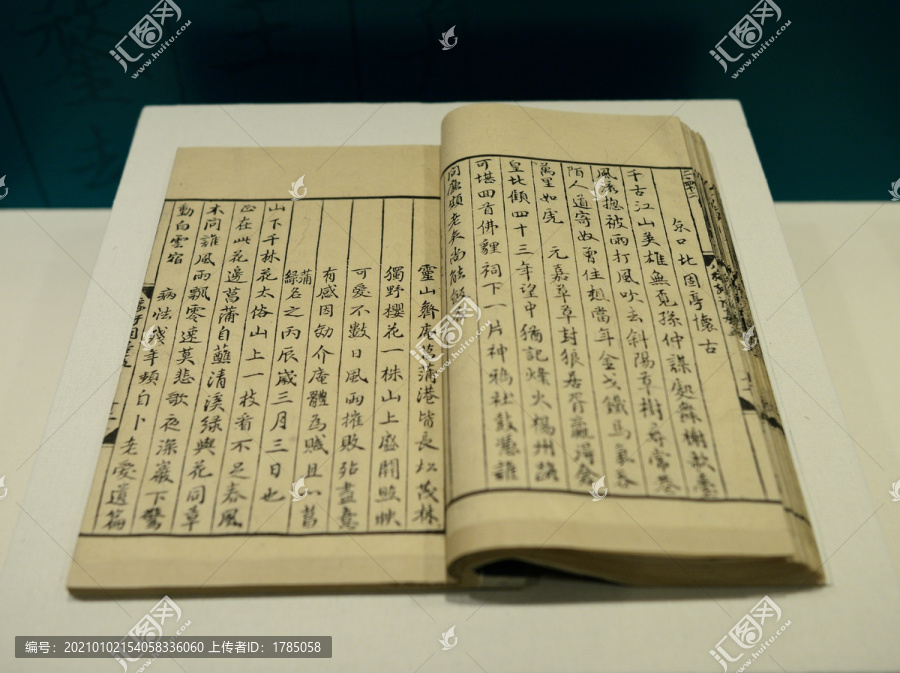 京口北固亭懷古
千古江山英雄無覓孫仲謀處舞榭歌臺
風流揔被雨打風吹去斜陽草樹尋常巷
陌人道寄奴曾住想當年金戈鐵馬氣吞
萬里如虎 元嘉草草封狼居胥贏得倉
皇北顧四十三年望中猶記烽火揚州路
可堪回首佛貍祠下一片神鴉社鼓憑誰
問廉頗老矣尚能飯
靈山齊庵菖蒲港皆長松茂林
獨野櫻花一株山上盛開照映
可愛不數日風雨摧敗殆盡意
有感因効介庵體為賦且以菖
蒲綠名之丙辰歲三月三日也
山下千林花太俗山上一枝看不足春風
正在此花邊菖蒲自蘸清溪綠與花同草
木問誰風雨飄零速莫悲歌夜深巖下驚
動白雲宿 病怯殘年頻自卜老愛遺篇
汇图网
www.huitu.com
编号：20210102154058336060 上传者ID：1785058